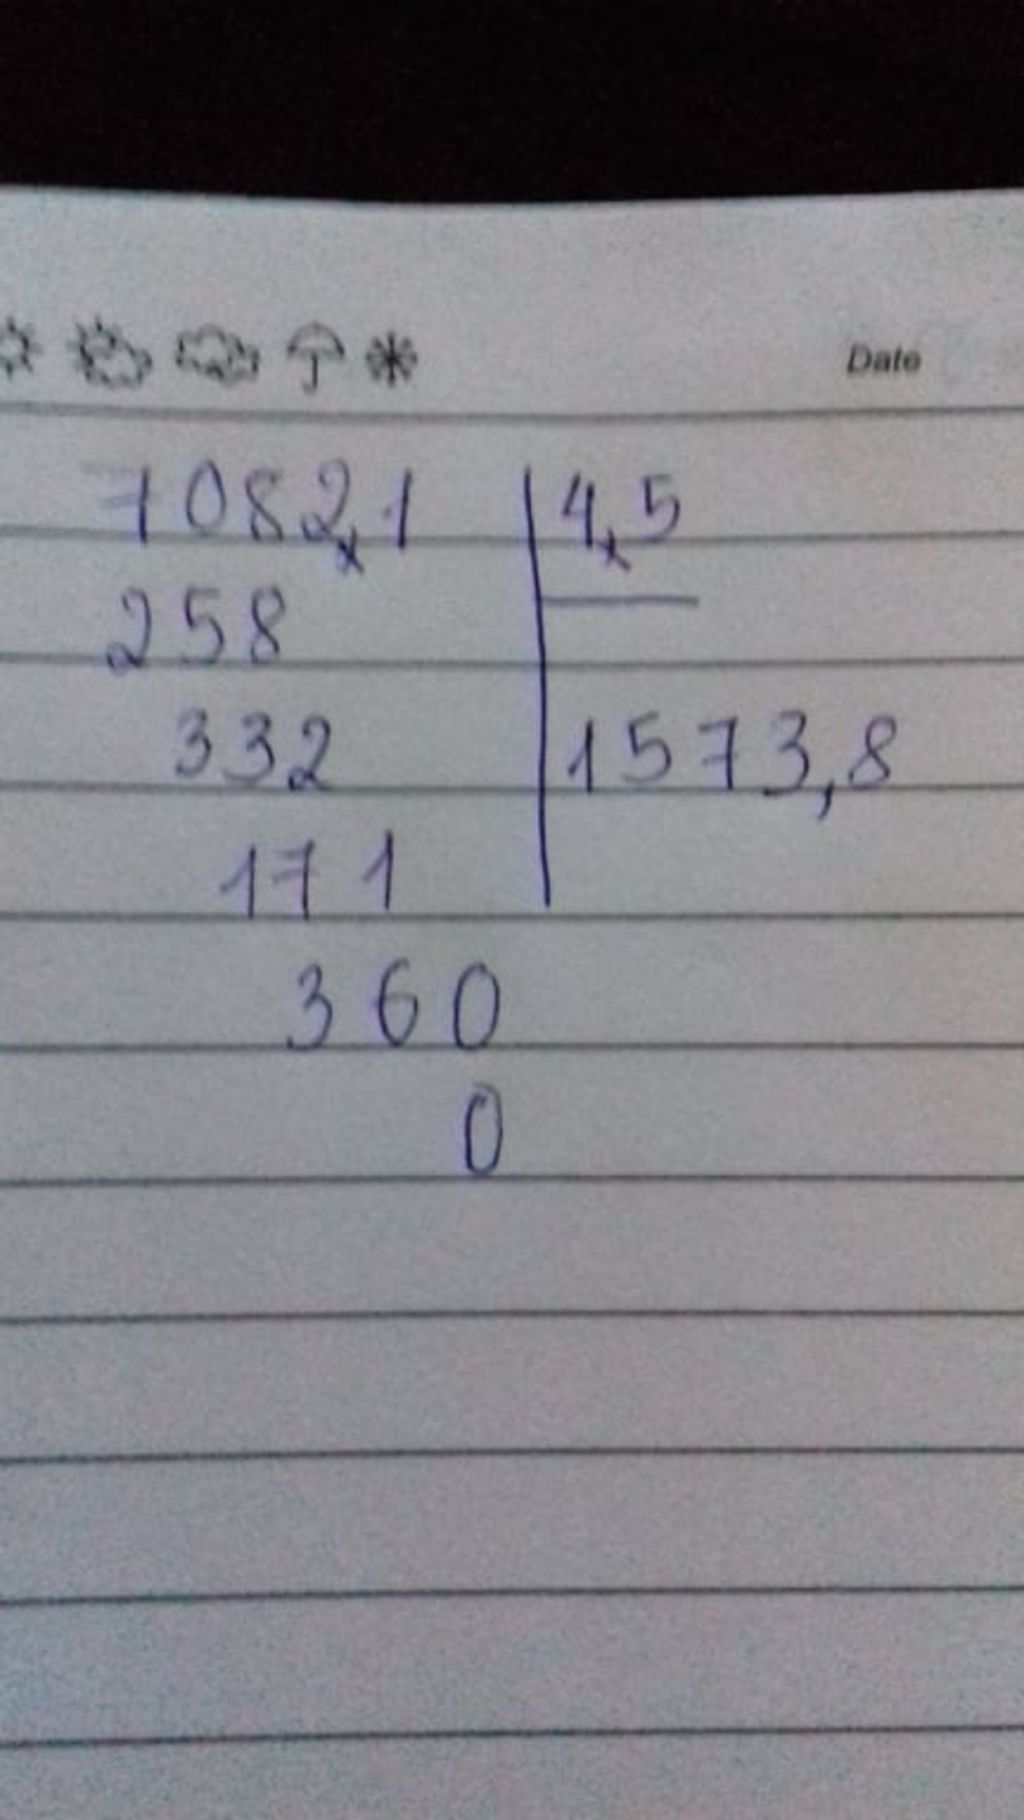 Date
7082,1 4,5
258
332 1573,8
171
360
0